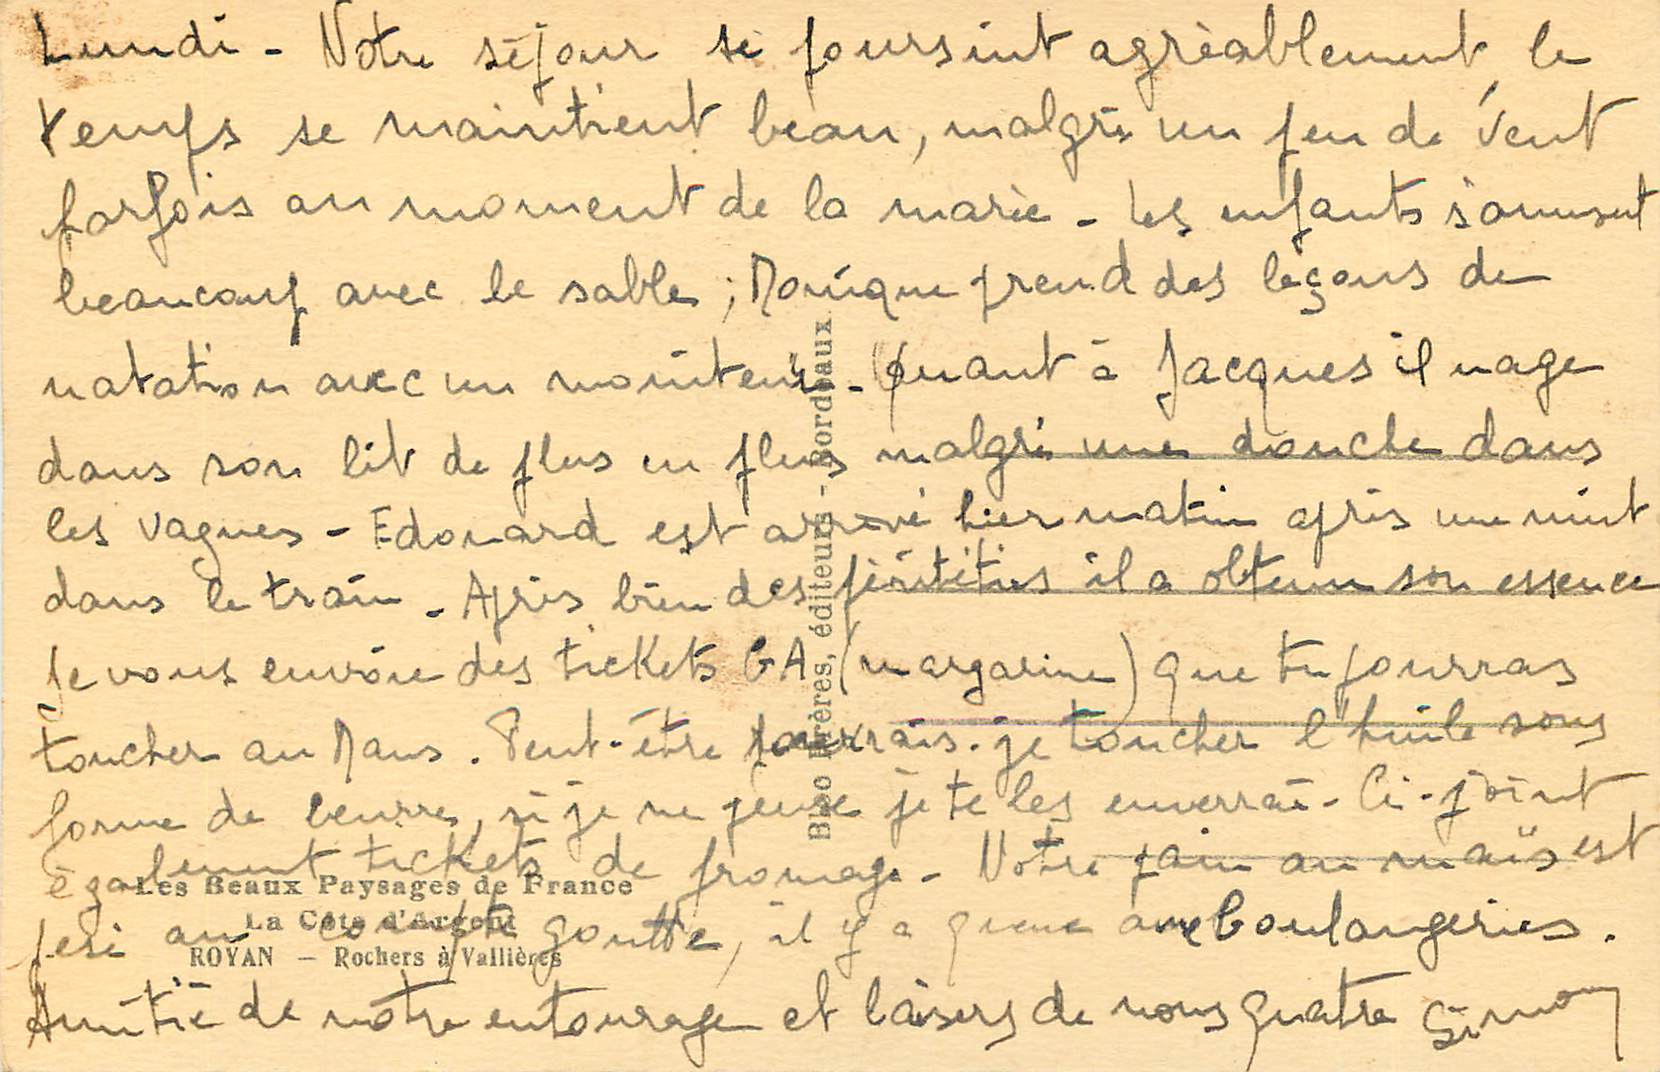 Lundi - Notre séjour se poursuit agréablement le
temps se maintient beau, malgré un peu de vent
parfois au moment de la marée - Les enfants s'amusent
beaucoup avec le sable ; Monique prend des leçons de
natation avec un moniteur - Quant à Jacques il nage
dans son lit de plus en plus malgré une douche dans
les vagues - Edouard est arrivé hier matin après une nuit
dans le train - Après bien des péripéties il a obtenu son essence
Je vous envoie des tickets GA (margarine) que tu pourras
toucher au Mans. Peut-être pourrais-je toucher l'huile sous
forme de beurre, si je ne peux je te les enverrai - Ci-joint
également tickets de fromage - Notre pain au maïs est
pesé au compte goutte, il y a queue aux boulangeries.
Amitié de notre entourage et baisers de nous quatre Simon
Bloc Frères, éditeurs - Bordeaux
Les Beaux Paysages de France
La Côte d'Argent
ROYAN — Rochers à Vallières